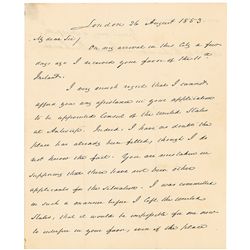 London 26 August 1853
My dear Sir/
On my arrival in this City a few
days ago I received your favor of the 11th
Instant.
I very much regret that I cannot
afford you any assistance in your application
to be appointed Consul of the United States
at Antwerp. Indeed, I have no doubt the
place has already been filled, though I do
not know the fact. You are mistaken in
supposing that there have not been other
applicants for the situation. I was committed
in such a manner before I left the United
States, that it would be impossible for me now
to interfere in your favor, even if the place